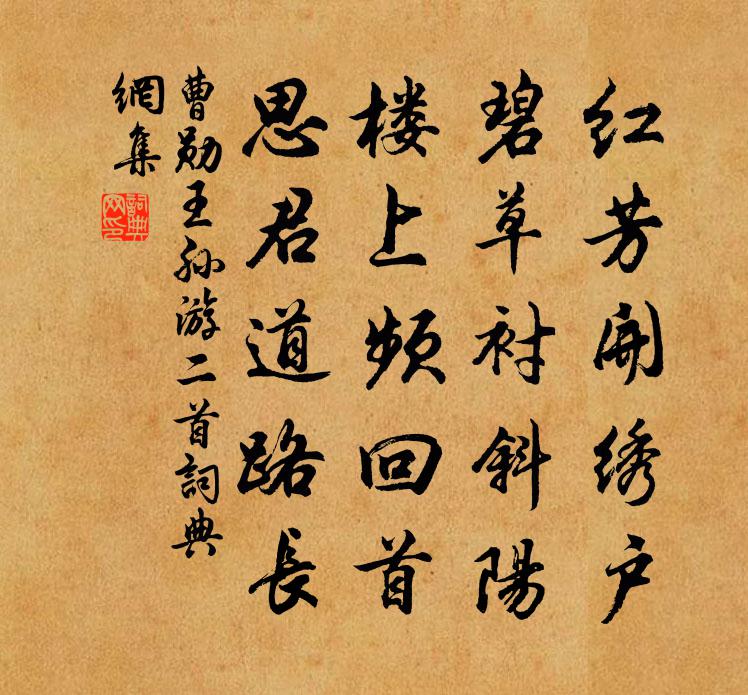 红芳開绣户
碧草衬斜陽
楼上频回首
思君道路長
曹勛王孙游二首詞典
網集
詞典
网印